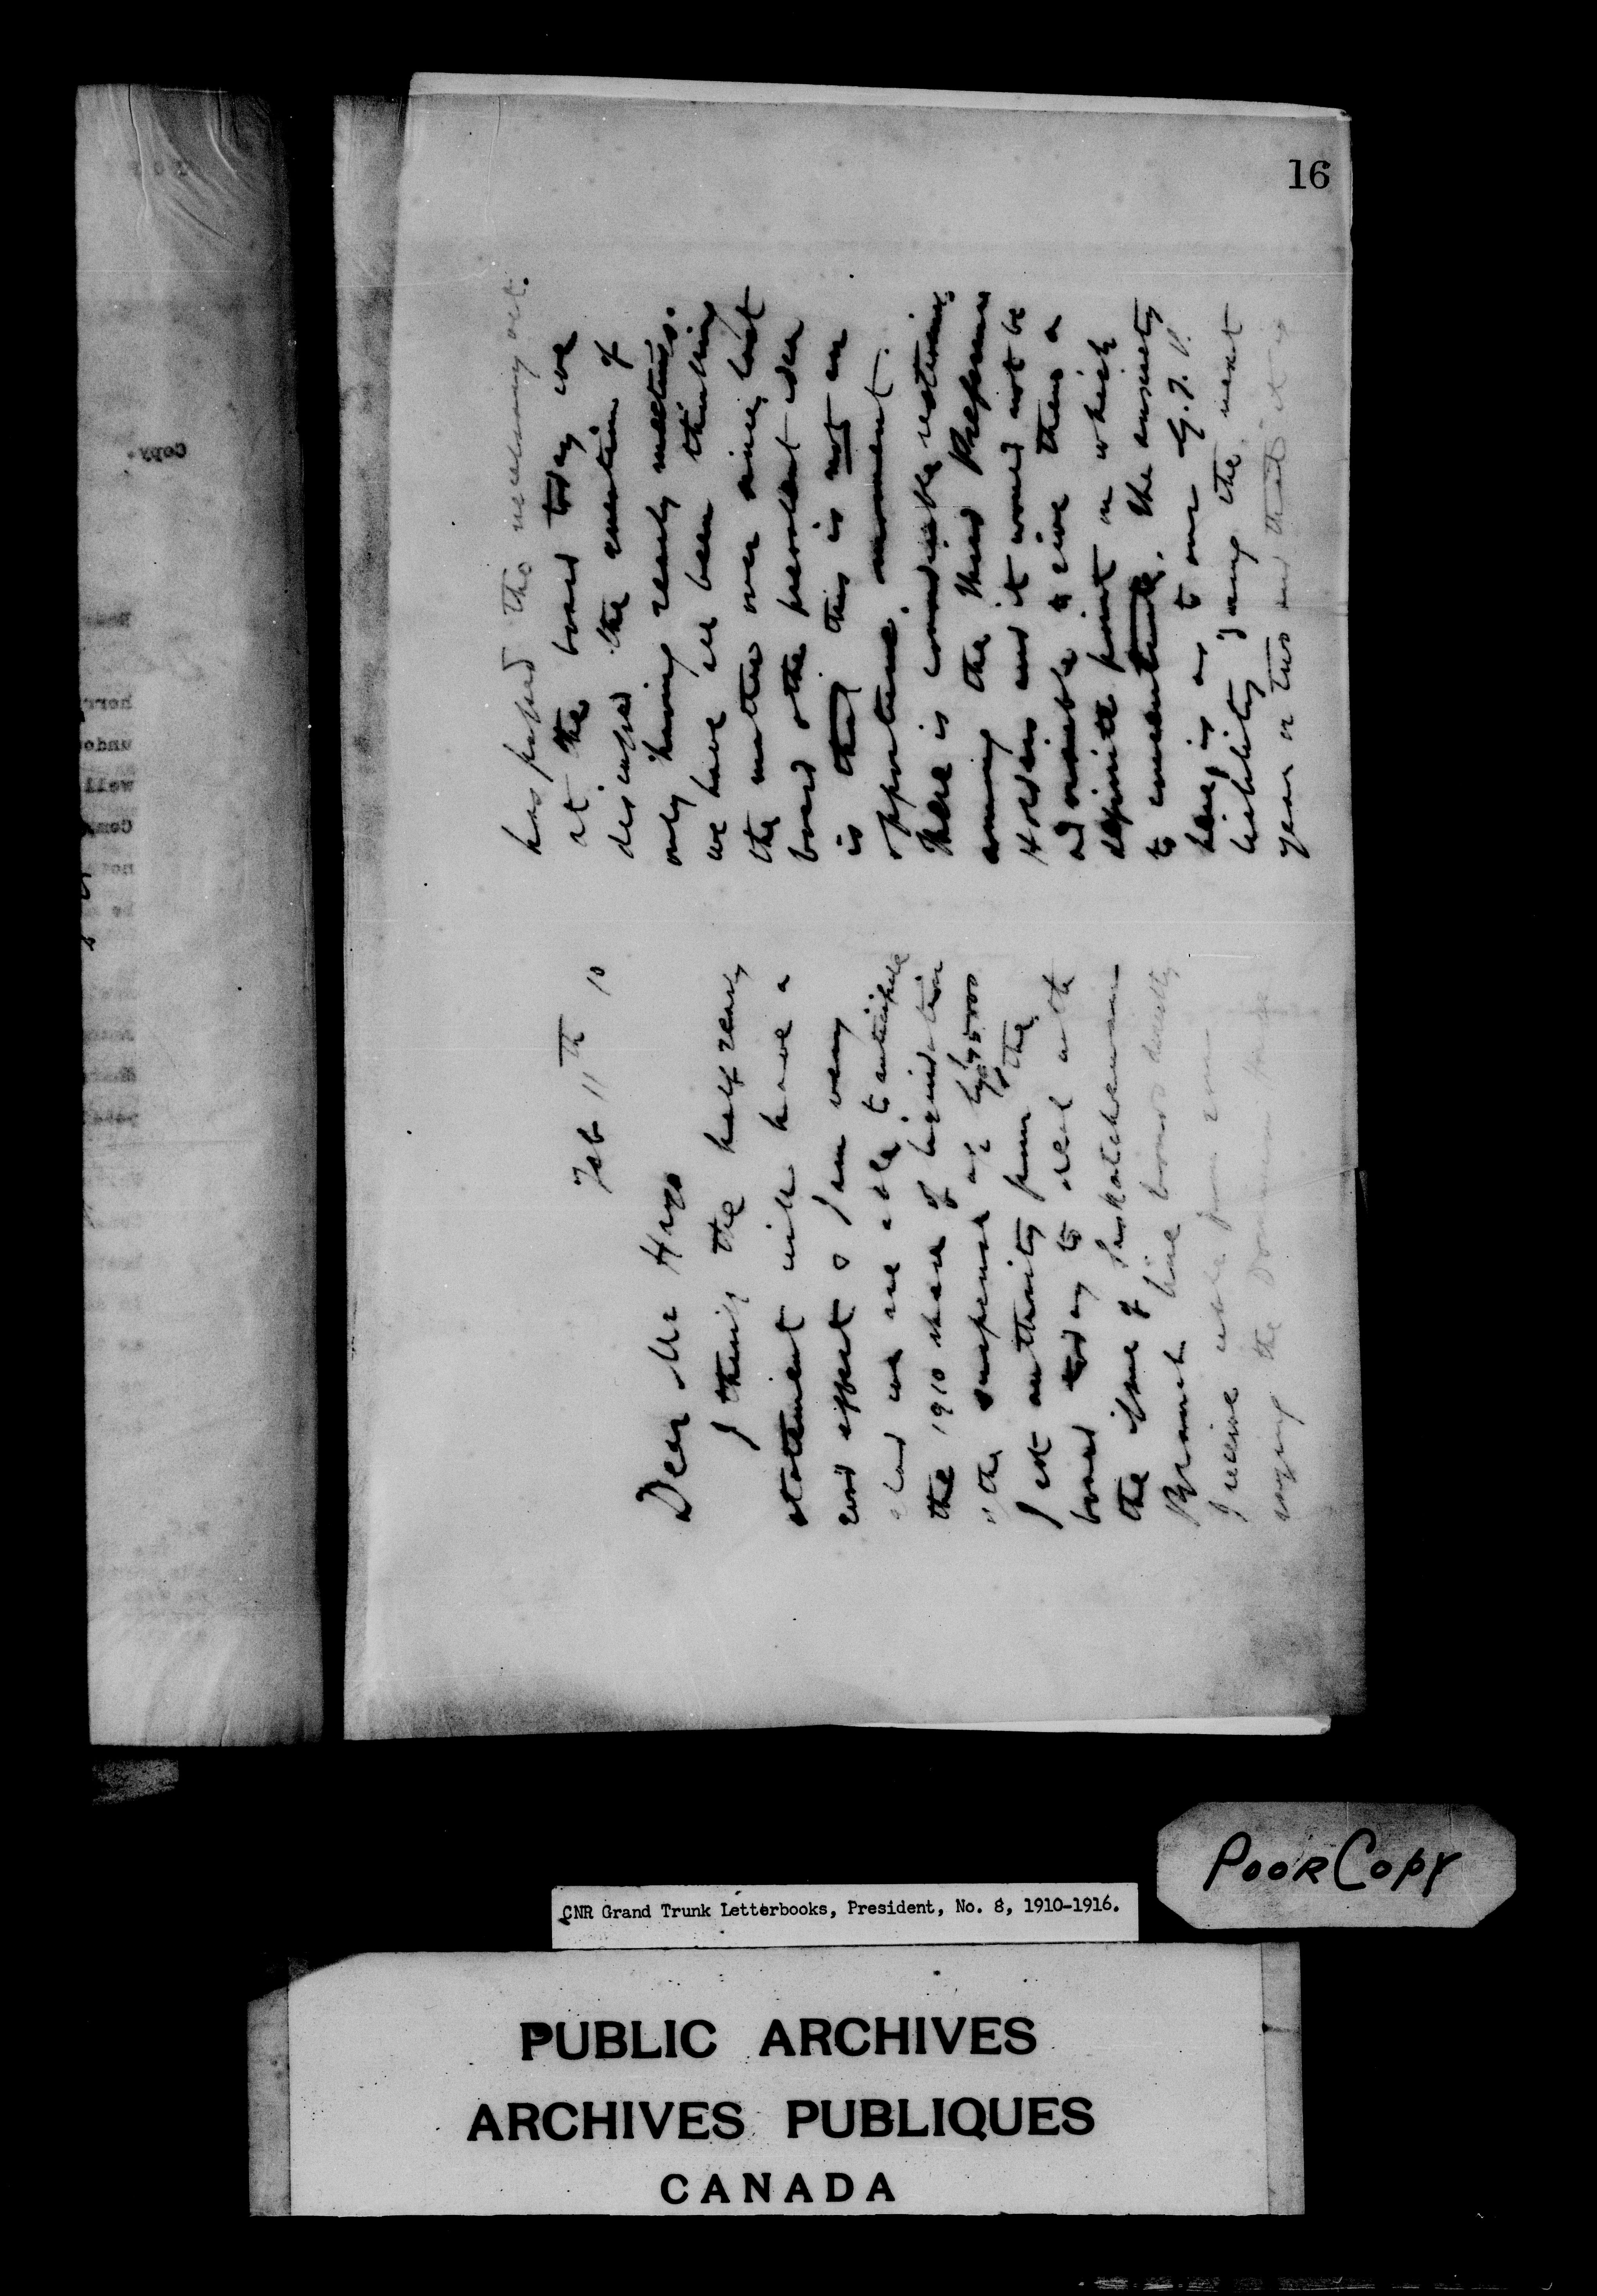 16
Feb 11th 10
Dear Mr Hays
I think the half yearly
statement will have a
good effect & I am very
glad we are able to anticipate
the 1910 share of liquidation
of the suspense a/c by £75000
I got authority from the
board today to deal with
the issue of Saskatchewan
Branch line bonds directly
I receive cable from you
saying the Dominion House
has passed the necessary act.
at the board today we
discussed the question of
only having yearly meetings.
we have all been thinking
the matter over since last
board & the prevalent idea
is that this is not an
opportune moment.
There is considerable
among the Third Preference
Holders and it would not be
advisable to give them a
definite point on which
to concentrate. the anxiety
being as to our G.T.P.
liability during the next
year or two and that it is
Copy.
CNR Grand Trunk Letterbooks, President, No. 8, 1910-1916.
POOR COPY
PUBLIC ARCHIVES
ARCHIVES PUBLIQUES
CANADA